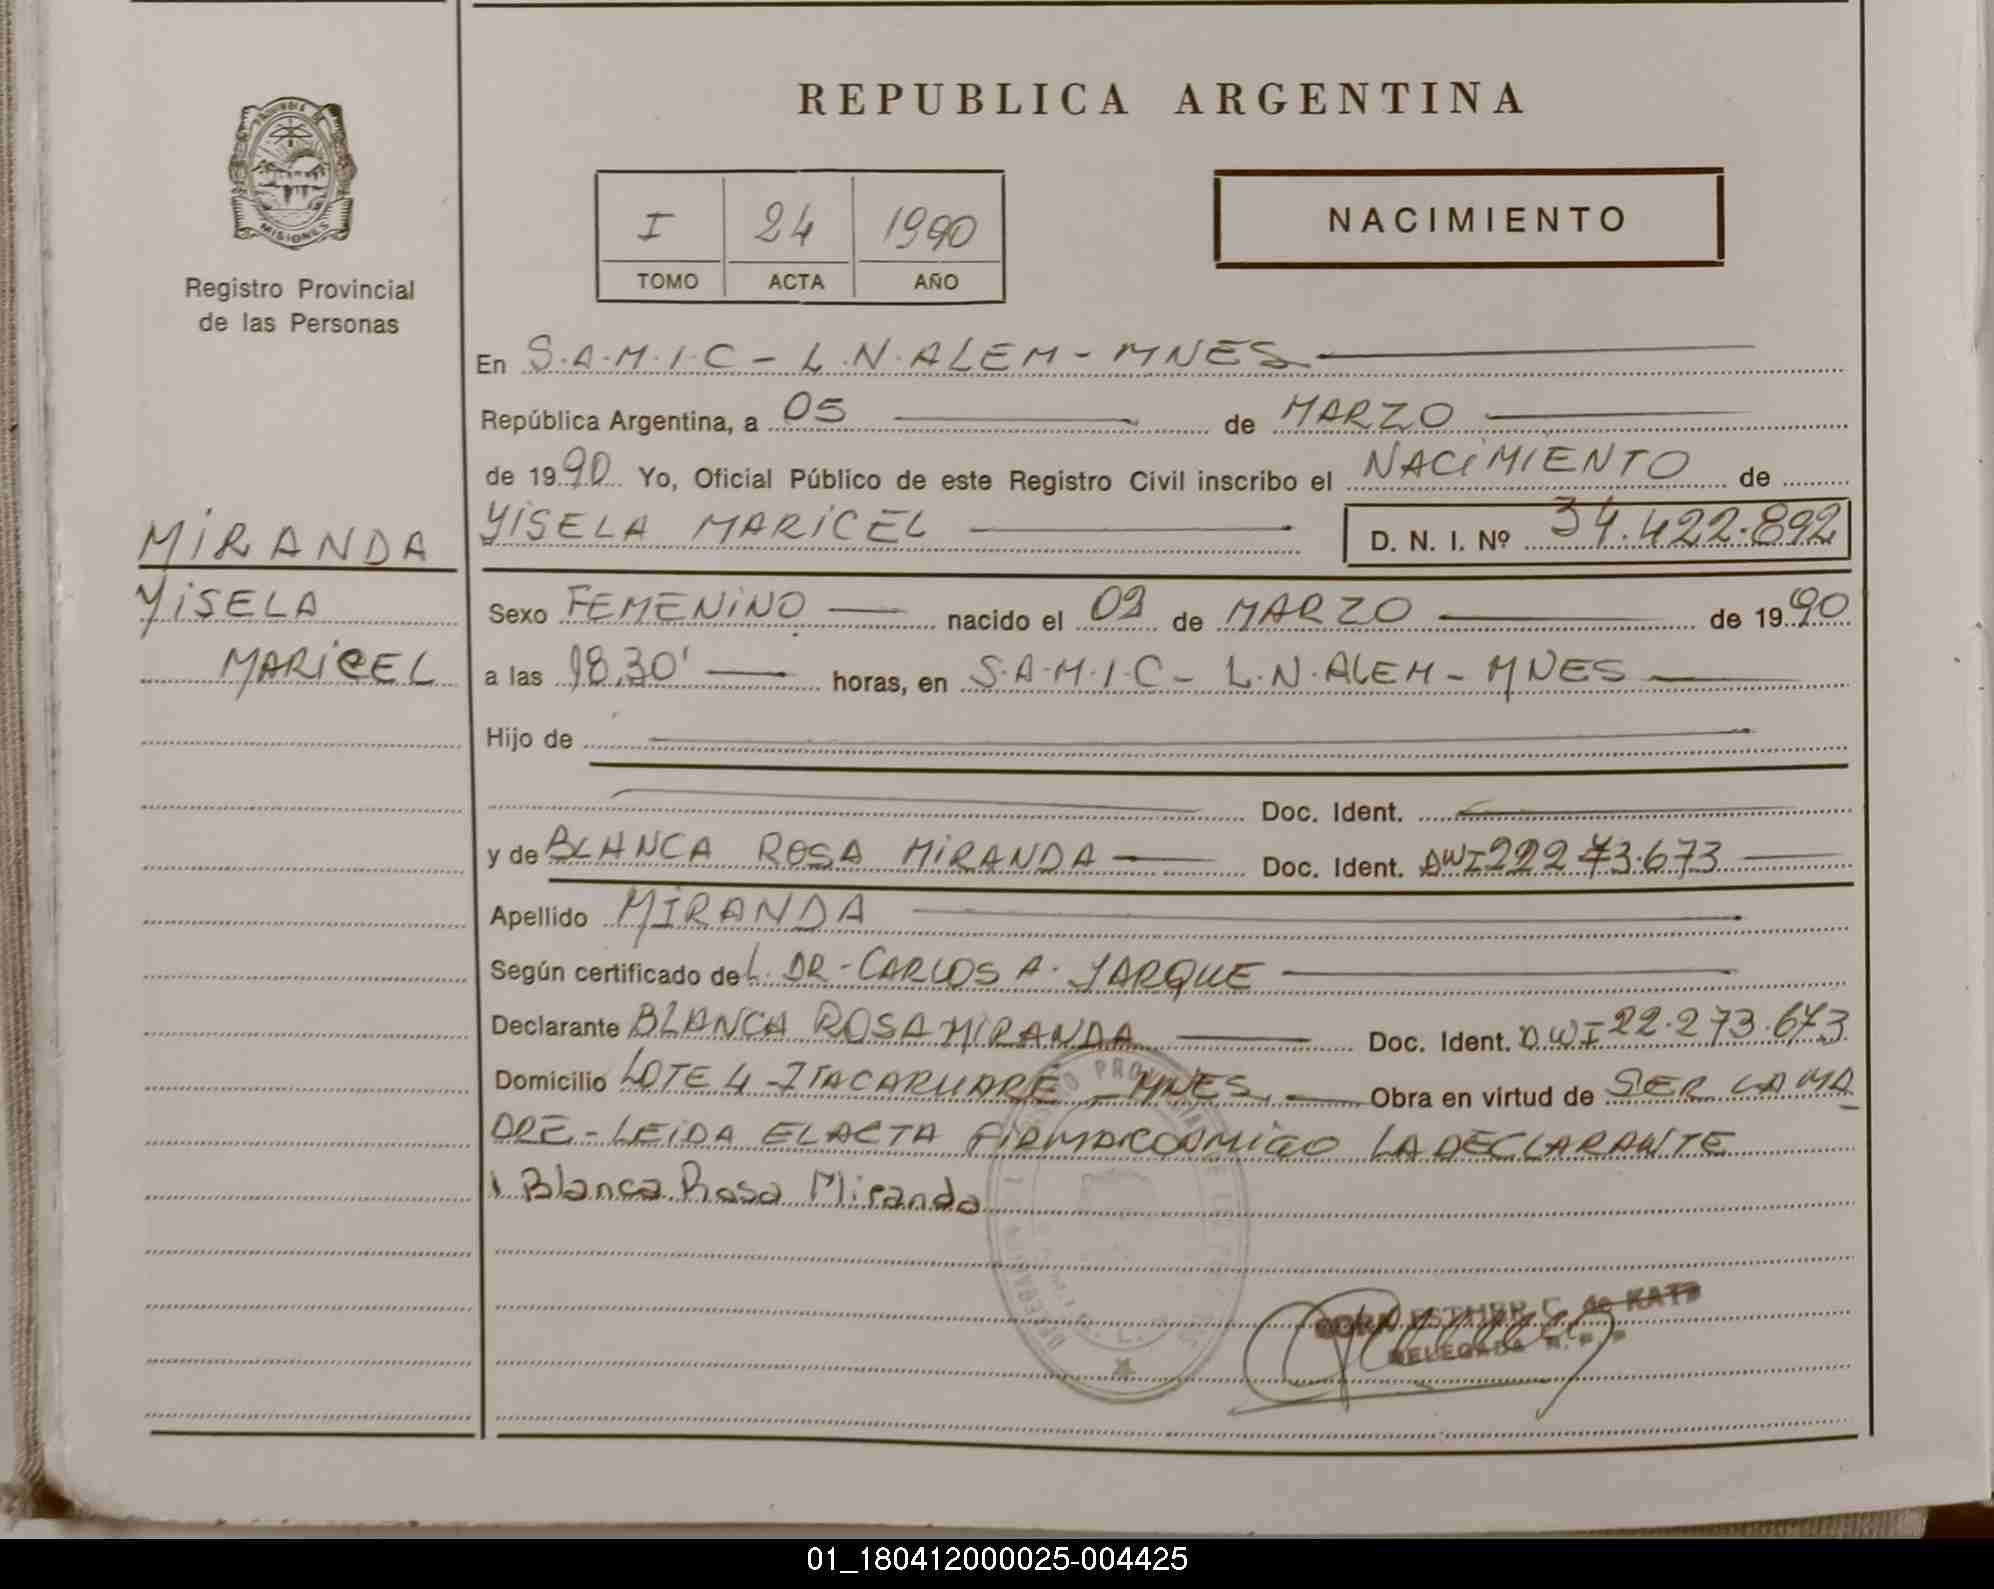 REPUBLICA ARGENTINA
PROVINCIA DE
MISIONES
Registro Provincial
de las Personas
I 24 1990
TOMO ACTA AÑO
NACIMIENTO
En S.A.M.I.C - L.N.ALEM - MNES
República Argentina, a 05 de MARZO
de 1990 Yo, Oficial Público de este Registro Civil inscribo el NACIMIENTO de
MIRANDA
YISELA MARICEL D. N. I. Nº 34.422.892
YISELA
MARICEL
Sexo FEMENINO nacido el de MARZO de 1990
a las 18.30' horas, en S.A.M.I.C - L.N.ALEM - MNES
Hijo de
Doc. Ident.
y de BLANCA ROSA MIRANDA Doc. Ident. DNI 22273.673
Apellido MIRANDA
Según certificado del. DR - CARLOS A. YARQUE
Declarante BLANCA ROSA MIRANDA Doc. Ident. DNI 22.273.673
Domicilio LOTE 4 - ITACARUARE - MNES. Obra en virtud de SER LA MA
DRE - LEIDA EL ACTA FIRMA CONMIGO LA DECLARANTE
Blanca Rosa Miranda
ESTHER C. de KATZ
DELEGADA R. P. P.
01_180412000025-004425